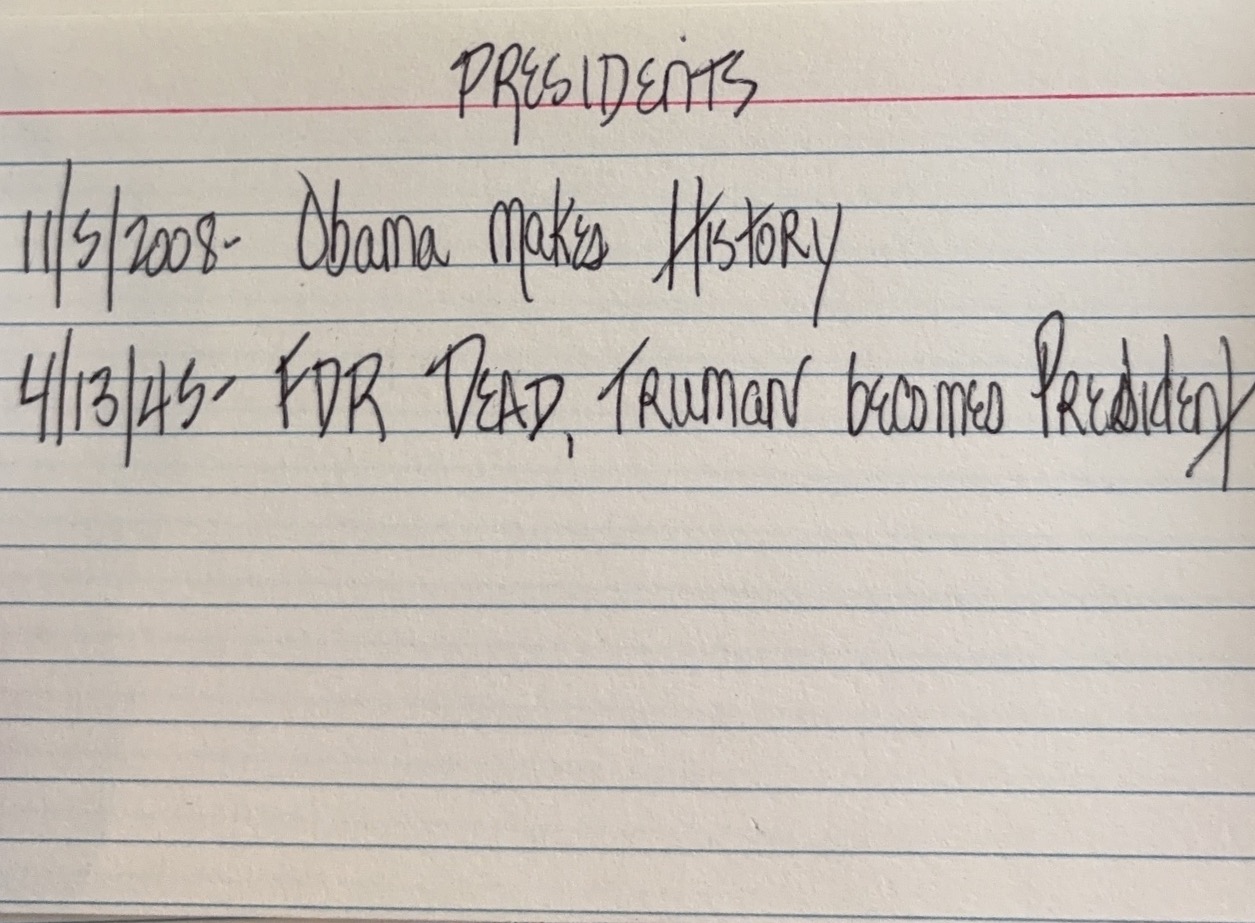 PRESIDENTS
11/5/2008- Obama Makes History
4/13/45- FDR DEAD, TRUMAN becomes President